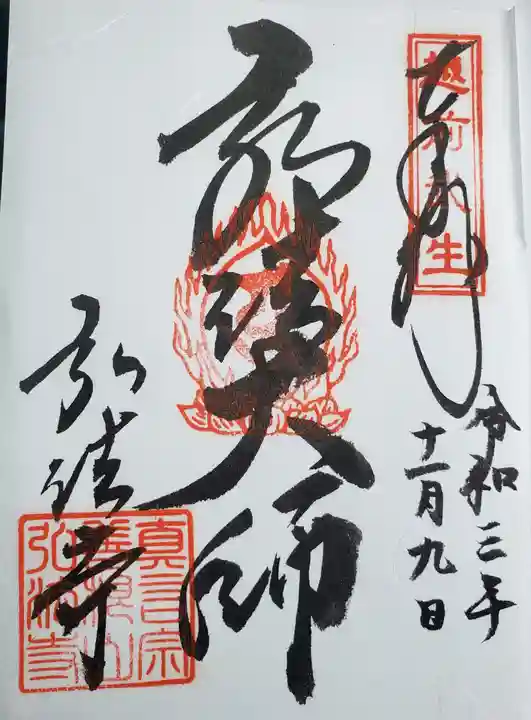 奉拝
越前武生
令和三年
十一月九日
弘法大師
弘法寺
真言宗
善根山
弘法寺